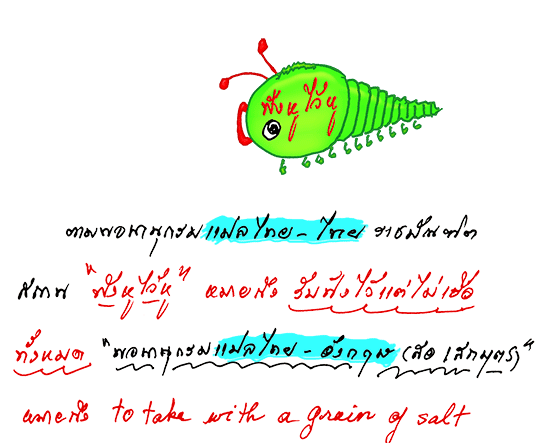 ฟังหู ไว้หู
ตามพจนานุกรมแปลไทย - ไทย ราชบัณฑิต
สถาน "ฟังหูไว้หู" หมายถึง รับฟังไว้แต่ไม่เชื่อ
ทั้งหมด "พจนานุกรมแปลไทย - อังกฤษ (สอ เสถบุตร)"
หมายถึง to take with a grain of salt